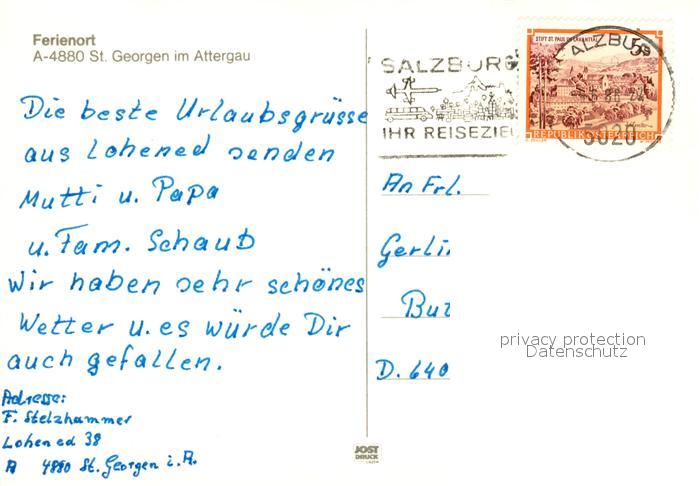 Ferienort
A-4880 St. Georgen im Attergau
Die beste Urlaubsgrüsse
aus Lohened senden
Mutti u. Papa
u. Fam. Schaub
wir haben sehr schönes
Wetter u. es würde Dir
auch gefallen.
Adresse:
F. Stelzhammer
Lohened 38
A 4880 St. Georgen i. A.
SALZBURG
IHR REISEZIEL
STIFT ST. PAUL IM LAVANTTAL
5S
REPUBLIK ÖSTERREICH
SALZBURG
5020
An Frl.
Gerli
Bu
D. 640
privacy protection
Datenschutz
JOST
DRUCK